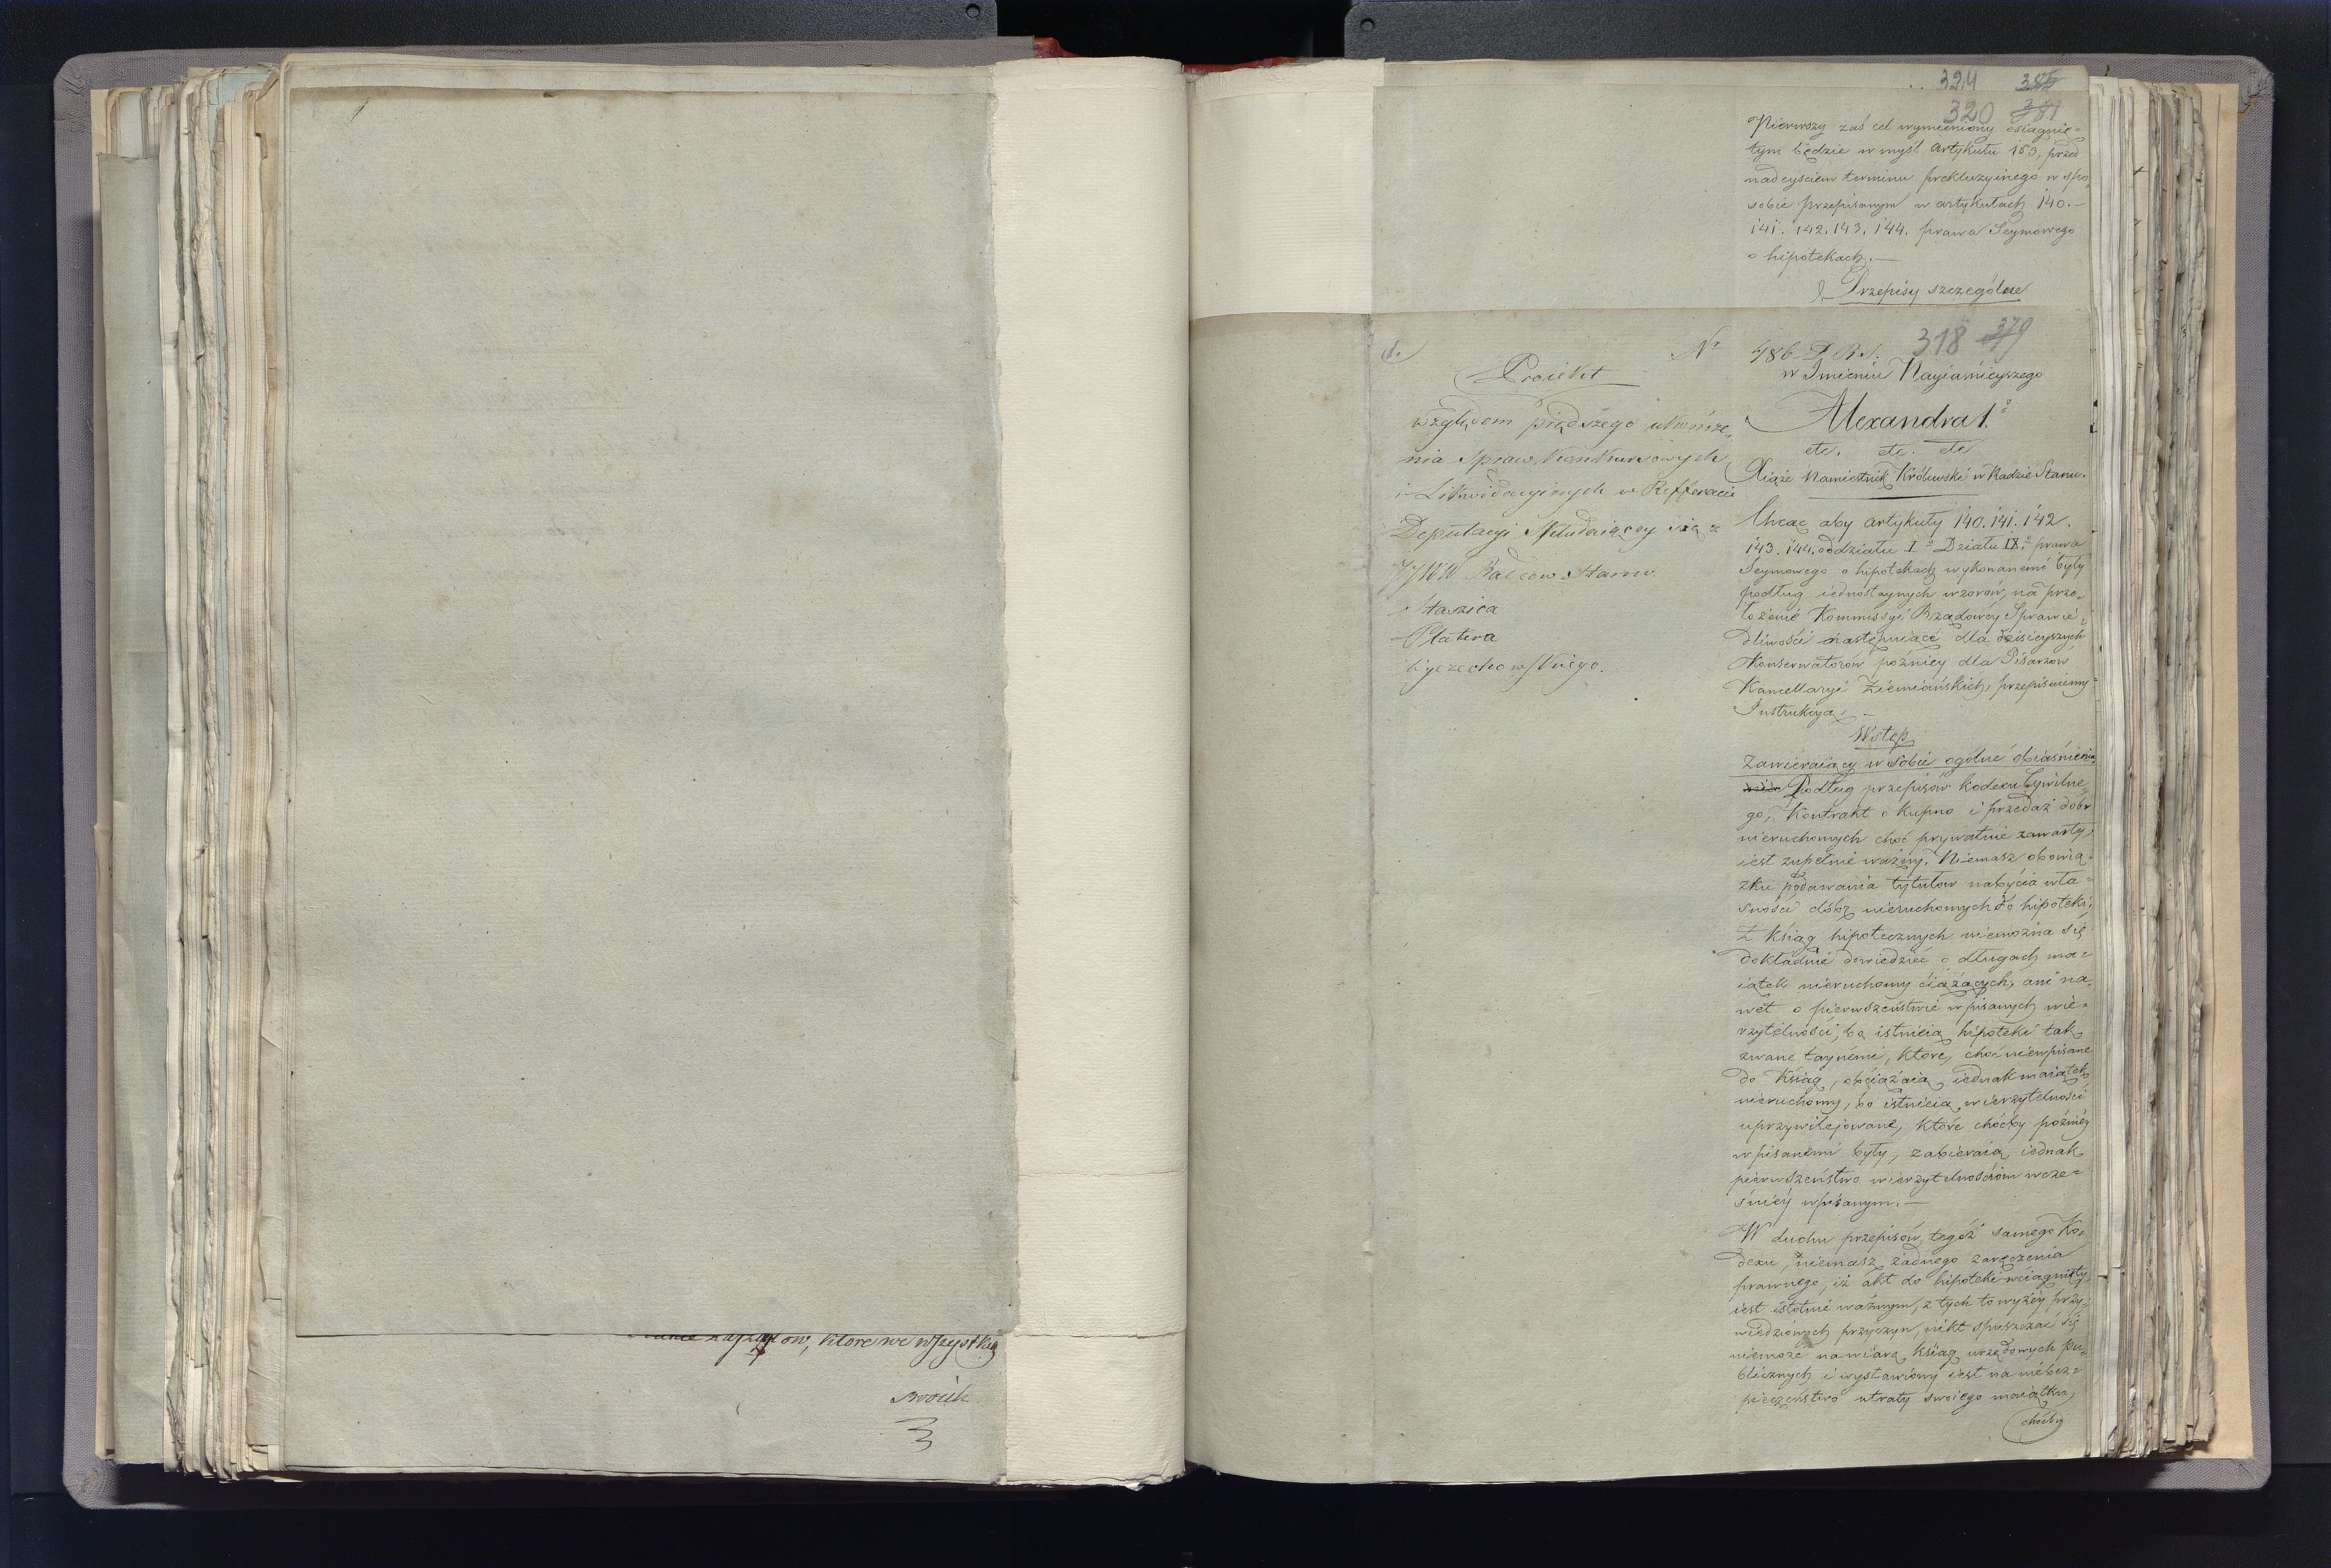 swoich
324 385
320 381
Pierwszy zaś cel wymieniony osiągnię-
tym będzie w myśl Artykułu 153, przed
nadeyściem terminu prekluzyinego w spo-
sobie przepisanym w artykułach 140.-
141. 142. 143. 144. prawa Seymowego
o hipotekach.-
Przepisy szczególne
318 379
1.
Nr 786 D. R. S.
Proiekt
względem prędszego ukończe-
nia Spraw Konkursowych
i Likwidacyinych w Refferacie
Deputacyi składaiącey się z
JJWW Radców Stanu.
Staszica
Platera
Wyczechowskiego.
w Imieniu Nayiaśnieyszego
Alexandra 1o
etc. etc. etc
Xiąże Namiestnik Królewski w Radzie Stanu.
Chcąc aby artykuły 140. 141. 142.
143. 144. oddziału Io Działu IXo prawa
Seymowego o hipotekach wykonanemi były
podług iednostaynych wzorów, na prze-
łożenie Kommissyi Rządowéy Sprawie-
dliwości następuiącé dla dzisieyszych
Konserwatorów późniey dla Pisarzów
Kancellaryi Ziemiańskich, przepisuiemy
Instrukcyą. -
Wstęp
Zawieraiący w sobie ogólné obiaśnienia
Podług przepisów kodexu Cywilne-
go, Kontrakt o kupno i przedaż dobr
nieruchomych choć prywatnie zawarty,
iest zupełnie ważny. Niemasz obowią-
zku podawania tytułow nabycia wła-
sności dóbr nieruchomych do hipoteki;
Z ksiąg hipotecznych niemożna się
dokładnie dowiedzieć o długach ma-
iątek nieruchomy ciążących, ani na-
wet o pierwszeństwie wpisanych wie-
rzytelności, bo istnieią hipoteki tak
zwane taynémi, które, choć niewpisane
do Ksiąg, obciążaią iednak maiątek
nieruchomy, bo istnieią wierzytelności
uprzywilejowane, które choćby późniéy
wpisanémi były, zabieraią iednak
pierwszeństwo wierzytelnościom wcze-
śniéy wpisanym. -
W duchu przepisów tegóż samego Ko-
dexu, niemasz żadnego zaręczenia
prawnego, iż akt do hipoteki wciągnięty
iest istotnie ważnym, z tych to wyżéy przy-
wiedzionych przyczyn, nikt spuszczać się
niemoże na wiarę Ksiąg urzędowych Pu-
blicznych i wystawiony iest na niebez-
pieczeństwo utraty swoiego maiątku,
choćby